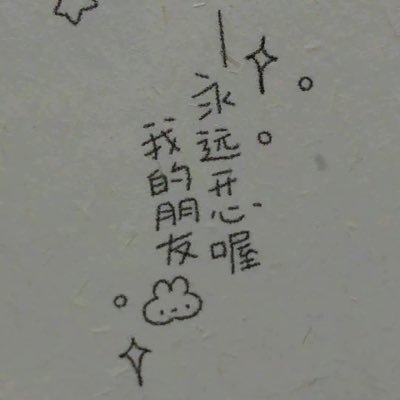 永远开心喔
我的朋友